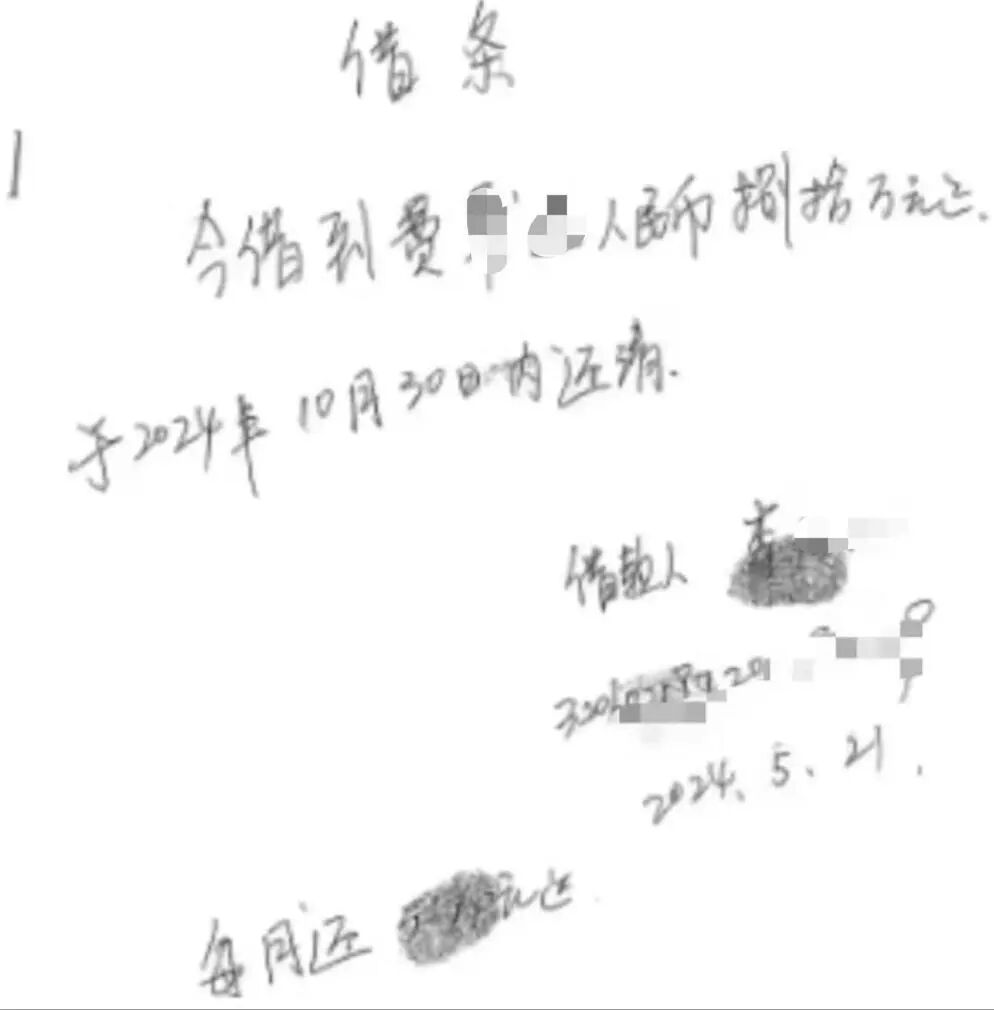 借条
今借到费 人民币捌拾万元正.
于2024年10月30日内还清.
借款人 李
320
2024.5.21.
每月还 元正